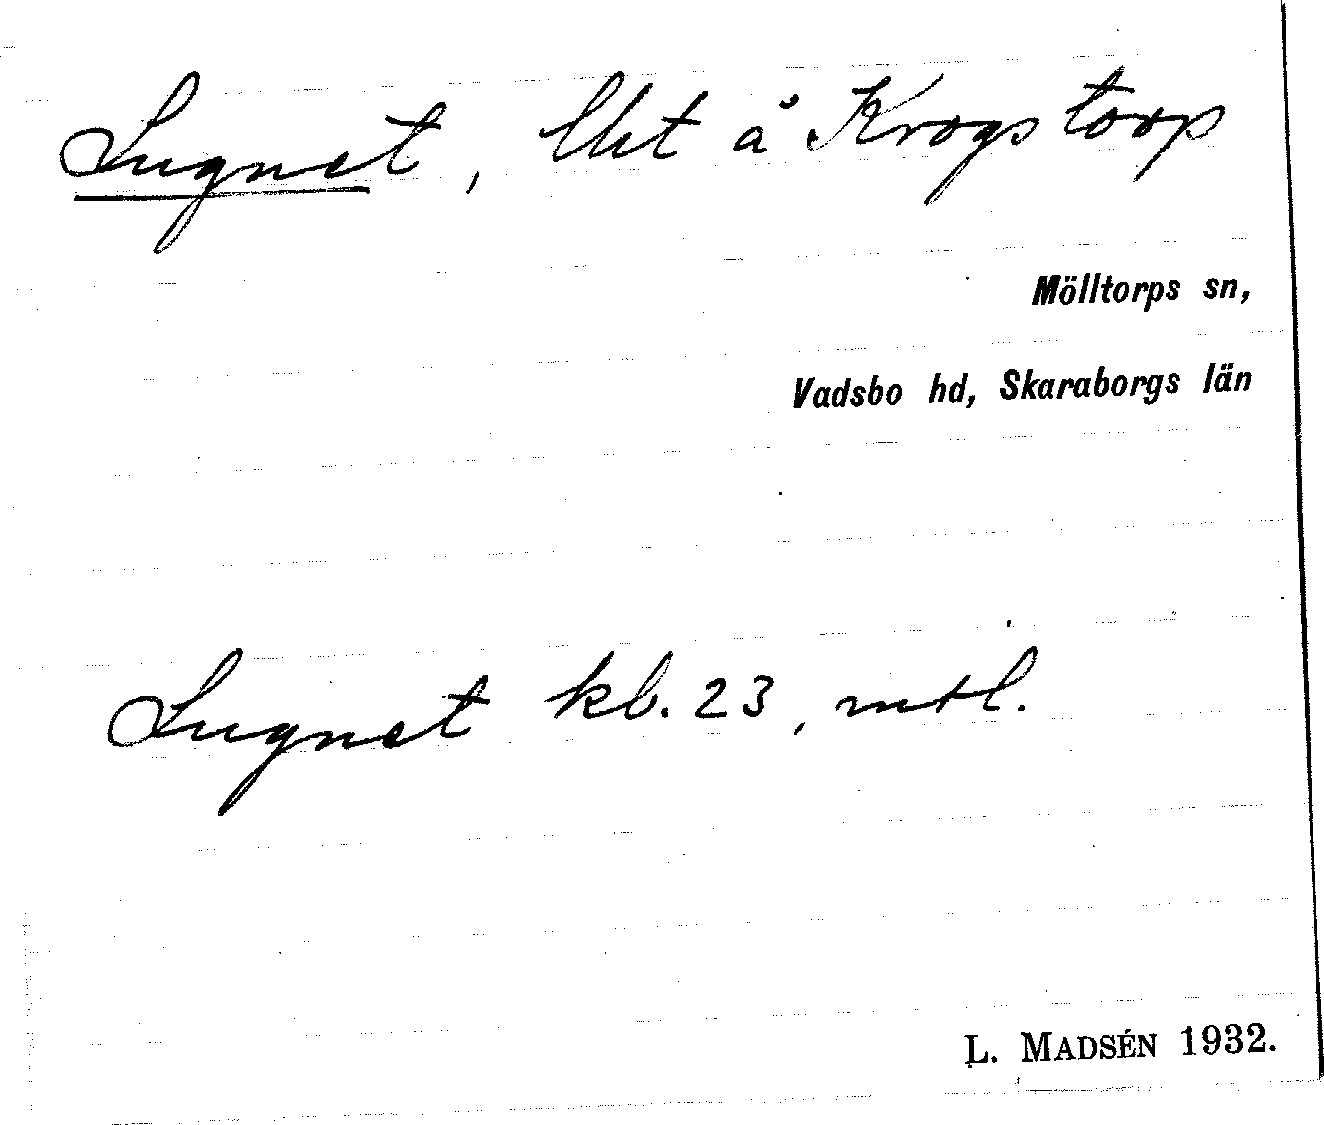 Lugnet, lht å Krogstorp
Mölltorps sn,
Vadsbo hd, Skaraborgs län
Lugnet kb. 23, mtl.
L. MADSÉN 1932.